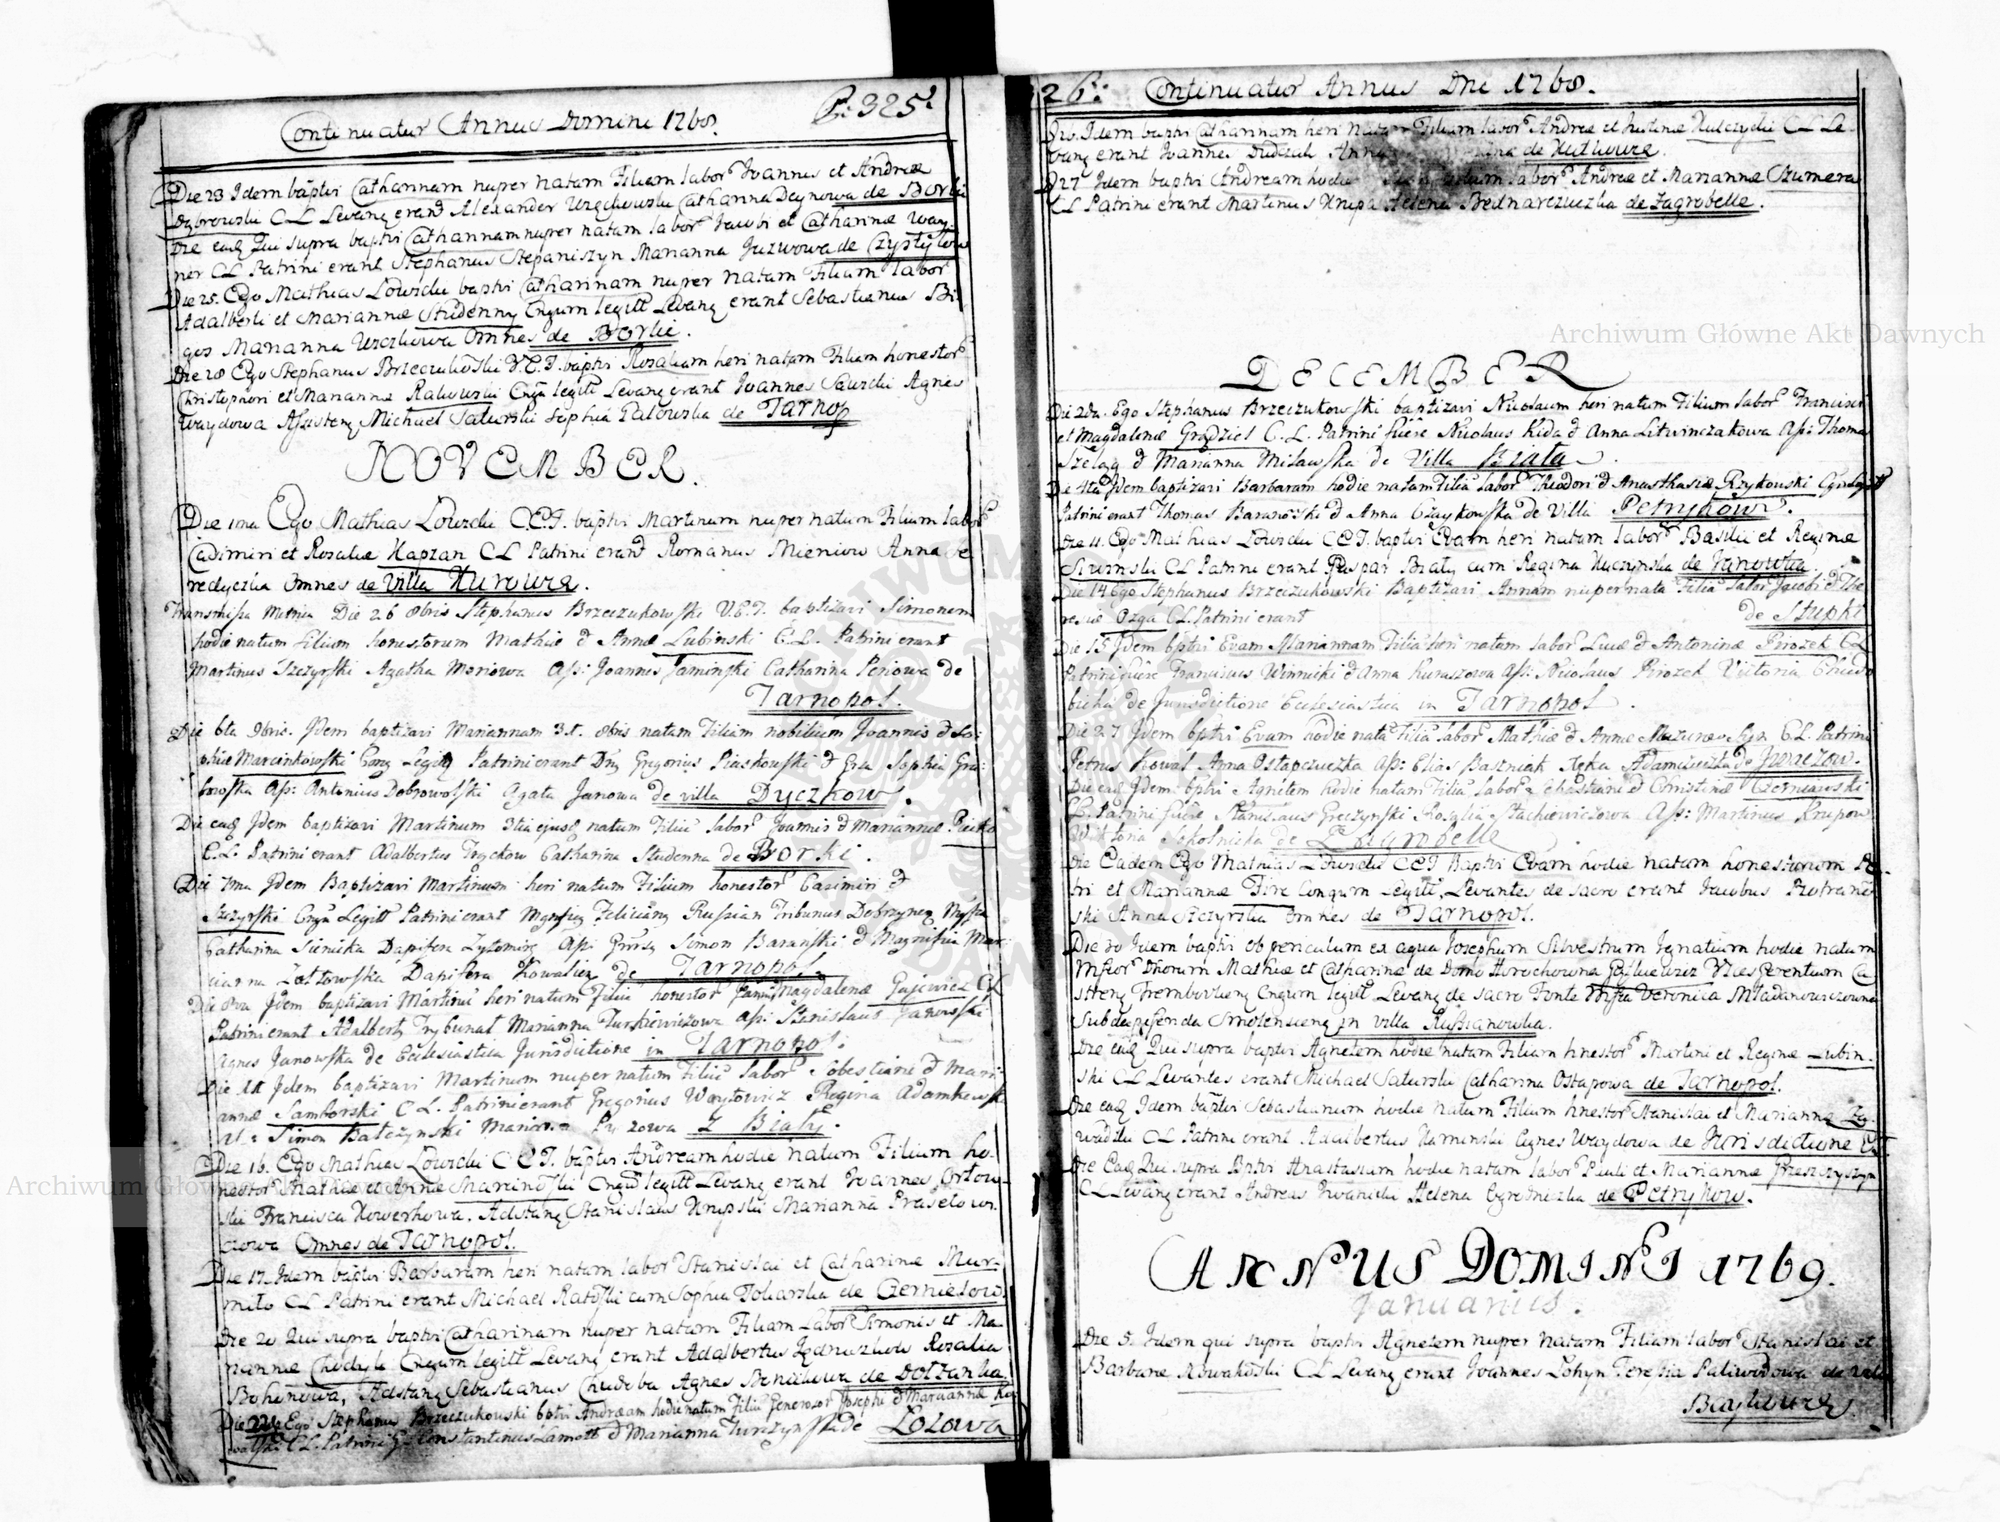 Continuatur Annus Domini 1768. P: 325.
Die 23 Idem bapti Catharinam nuper natam Filiam labor Joannis et Andreæ
Dąbrowski C L Levanq erant Alexander Catharina Deynowa de Borki
Die eadq Qui supra bapti Catharinam nuper natam labor Jacobi et Catharinæ Wag
ner CL Patrini erant Stephanus Stepaniszyn Marianna Juzwowa de Czystylow
Die 25. Ego Mathias Lowicki bapti Catharinam nuper natam Filiam labor
Adalberti et Mariannæ Studenny Cngum legitt Levanq erant Sebastianus Bi-
gos Marianna Uszckowa Omnes de Borki.
Die 28 Ego Stephanus Brzeczukowski V.C.T. bapti Rosaliam heri natam Filiam honestor
Christophori et Mariannæ Rakowski Cngu legitt Levanq erant Joannes Sawicki Agnes
Waydowa Assistenq Michael Saturski Sophia Palowska de Tarnop
NOVEMBER.
Die 1ma Ego Mathias Lowicki C.C.T. bapti Martinum nuper natum Filium labor
Casimiri et Rosaliæ Kapzan CL Patrini erant Romanus Mieniow Anna Fe
redyczka Omnes de Villa Kurowce.
Transmissa Metrica Die 26 8bris Stephanus Brzeczukowski V.C.T. baptizavi Simonem
hodie natum filium honestorum Mathiæ & Annæ Lubinski C.L. Patrini erant
Martinus Szczyrski Agatha Moniowa Ass: Joannes Kaminski Catharina Peniowa de
Tarnopol.
Die 6ta 9bris. Idem baptizavi Mariannam 31. 8bris natam Filiam nobilium Joannis & So-
phiæ Marcinkowski Conq Legitq Patrini erant Dnq Gregorius Piaskowski & Gsa Sophia Gra-
bowska Ass: Antonius Dobrowolski Agata Janowa de villa Dyczkow.
Die eadq Idem baptizavi Martinum 3tia ejusq natum Filiu labor Joannis & Mariannæ Pietko
C.L. Patrini erant Adalbertus Tryckow Catharina Studenna de Borki.
Die 7ma Idem Baptizavi Martinum heri natum Filium honestor Casimiri &
Szczyrski Cngu Legitt Patrini erant Mgnfiq Felicianq Russian Tribunus Dobrzynenq Mgfsa
Catharina Sieniska Dapifera Zytomirz Ass: Gnsq Simon Baranski & Magnifica Mari
ianna Zołtowska Dapifera Kowalien de Tarnopol
Die 8va Idem baptizavi Martinu heri natum Filiu honestor Magdalenæ Gajewicz CL
Patrini erant Adalbert Trybunał Marianna Turkiewiczowa Ass: Stanislaus Janowski
Agnes Janowska de Ecclesiastica Jurisdictione in Tarnopol.
Die 11 Idem baptizavi Martinum nuper natum Filiu labor Sebestiani & Mari
annæ Samborski C.L. Patrini erant Gregorius Woytowicz Regina Adamkowsk
Simon Bałczynski Mariona z Biały.
Die 16. Ego Mathias Lowicki CCT. bapti Andream hodie natum Filium ho-
nestor Mathiæ et Annæ Marcinoski Cngu legitt Levanq erant Joannes Orłow-
ski Francisca Kowerkowa. Adstanq Stanislaus Krupski Marianna
Omnes de Tarnopol.
Die 17. Idem bapti Barbaram heri natam labor Stanislai et Catharinæ Mur-
miło CL Patrini erant Michael Ratoski cum Sophia Tokarska de Cerniełow
Die 20 Qui supra bapti Catharinam nuper natam Filiam Labor Simonis et Ma-
riannæ Chudyk Cngum legitt Levanq erant Adalbertus Rosalia
Bohenowa, Adstanq Sebastianus Chudoba Agnes de Dołzanka
Die 22da Ego Stephanus Brzeczukowski bpti Andream hodie natum Filiu Generosor Josephi & Mariannæ
C.L. Patrini Constantinus & Marianna Turczynska de Łozowa
326: Continuatur Annus Dni 1768.
Idem bapti Catharinam heri natam Filiam labor Andreæ et Justinæ Kulczycki CL Le-
vanq erant Joannes Dudczak de Kutkowce.
D 27 Idem bapti Andream hodie labor Andreæ et Mariannæ Czumera
CL Patrini erant Martinus Krupa Helena Bednarczuczka de Zagrobelle.
DECEMBER
Die 2da. Ego Stephanus Brzeczukowski baptizavi Nicolaum heri natum Filium labor Francisci
et Magdalenæ Grądziel C.L. Patrini fuere Nicolaus Kida & Anna Litwinczakowa Ass: Thoma
Szeląg & Marianna Misławska de Villa Biała.
Die 4ta Idem baptizavi Barbaram hodie natam Filiã labor Theodori & Anasthasiæ Rzykowski Cgu Legitt
Patrini erant Thomas Baranowski & Anna Czaykowska de Villa Petrykow.
Die 11. Ego Mathias Lowicki C.C.T. bapti Evam heri natam labor Basilii et Reginæ
Sturmski CL Patrini erant Gaspar Biały cum Regina Kuczynska de Janowka.
Die 14 Ego Stephanus Brzeczukowski Baptizavi Annam nuper natã Filiã labor Jacobi & The
resiæ Ozga CL Patrini erant de Stupki
Die 15 Idem bpti Evam Mariannam Filiã heri natam labor Lucæ & Antoninæ Pirozek CL
Patrini fuere Franciscus Winnicki & Anna Kuraszowa Ass: Nicolaus Pirozek Victoria
de Jurisdictione Ecclesiastica in Tarnopol.
Die 27 Idem bpti Evam hodie natã Filiã labor Mathiæ & Annæ C.L. Patrini
Petrus Kowal Anna Ostapczuczka Ass: Elias Adamiczka de Iwaczow.
Die eadq Idem bpti Agnetem hodie natam Filiã labor Sebastiani & Christinæ Czerniawski
C.L. Patrini fuere Stanislaus Greczynski Rosalia Stachiewiczowa Ass: Martinus Krupow
Wiktoria Sokolniska de Zagrobelle
Die Eadem Ego Mathias Lowicki CCT Bapti Evam hodie natam honestorum Pe-
tri et Mariannæ Fire Congum Legitt, Levantes de sacro erant Jacobus Piotrawie
ski Anna Szczyrska Omnes de Tarnopol.
Die 30 Idem bapti ob periculum ex aqua Josephum Silvestrum Ignatium hodie natum
Dnorum Mathiæ et Catharinæ de Domo Horochowna Vices Gerentium Ca
strenq Trembowlenq Cngum legitt Levanq de sacro Fonte Veronica Mładanowiczowna
Subdapiferida Smolenscenq in villa Russianowka.
Die eadq Qui supra bapti Agnetem hodie natam Filiam hnestor Martini et Reginæ Lubin-
ski CL Levantes erant Michael Saturski Catharina Ostapowa de Tarnopol.
Die eadq Idem bapti Sebastianum hodie natum Filium hnestor Stanislai et Mariannæ Za
wadzki CL Patrini erant Adalbertus Kaminski Agnes Waydowa de Jurisdictione Ecl
Die Eadq Qui supra Bpti Anastasiam hodie natam labor Pauli et Mariannæ Greszczyszyn
CL Levanq erant Andreas Iwanicki Helena Ogrodniczka de Petrykow.
ANNUS DOMINI 1769.
Januarius.
Die 5. Idem qui supra bapti Agnetem nuper natam Filiam labor Stanislai et
Barbaræ Nowakoski CL Levanq erant Joannes Łohyn Teresia Paliwodowa de Villa
Biaykowce
Archiwum Główne Akt Dawnych
Archiwum Główne Akt Dawnych